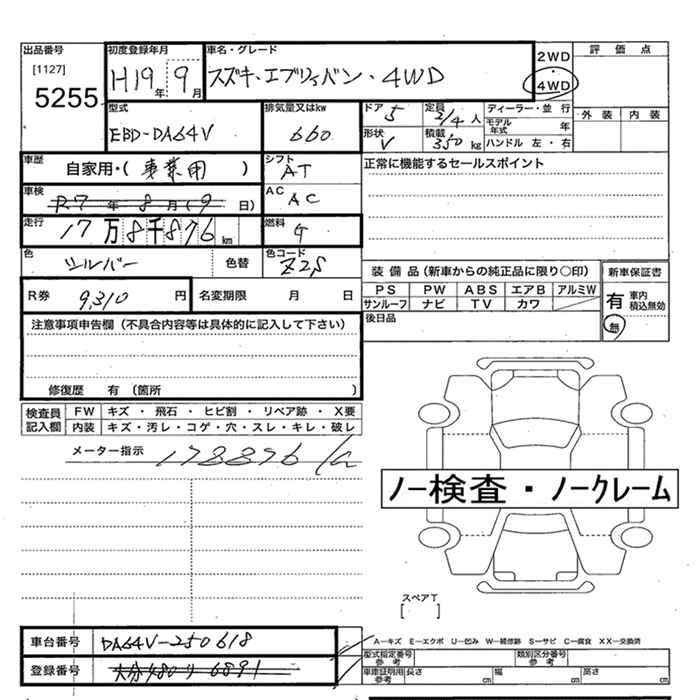 出品番号
[1127]
5255
初度登録年月
H19年 9月
車名・グレード
スズキ・エブリィバン・4WD
2WD
4WD
評価点
外装 内装
型式
EBD-DA64V
排気量又はkw
660
ドア
5
定員
2/4人
形状
V
積載
350kg
ディーラー・並行
モデル年式 年
ハンドル 左・右
車歴
自家用・(事業用)
シフト
AT
正常に機能するセールスポイント
車検
R7年8月(9日)
AC
AC
走行
17万8千876km
燃料
ガ
色
シルバー
色替
色コード
Z2S
装備品(新車からの純正品に限り○印)
PS PW ABS エアB アルミW
サンルーフ ナビ TV カワ
新車保証書
有
無
車内積込無効
R券
9,310円
名変期限 月 日
後日品
注意事項申告欄(不具合内容等は具体的に記入して下さい)
修復歴 有(箇所 )
検査員記入欄
FW キズ・飛石・ヒビ割・リペア跡・X要
内装 キズ・汚レ・コゲ・穴・スレ・キレ・破レ
メーター指示
178876 km
ノー検査・ノークレーム
スペアT
[ ]
車台番号
DA64V-250618
登録番号
大分480り6891
A-キズ E-エクボ U-凹み W-補修跡 S-サビ C-腐食 XX-交換済
型式指定番号参考
類別区分番号参考
車庫証明用参考
長さ cm
幅 cm
高さ cm